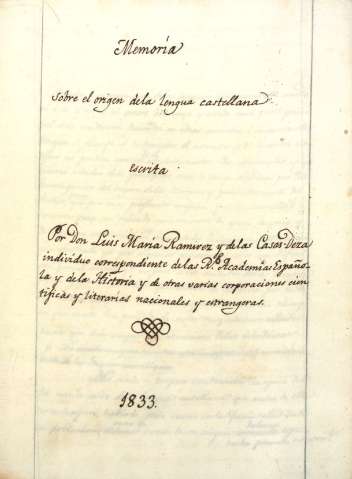 Memoria
sobre el origen de la lengua castellana
escrita
Por Don Luis María Ramirez y de las Casas-Deza
individuo correspondiente de las R.s Academias Españo-
la y de la Historia y de otras varias corporaciones cien
tíficas y literarias nacionales y estrangeras.
1833.